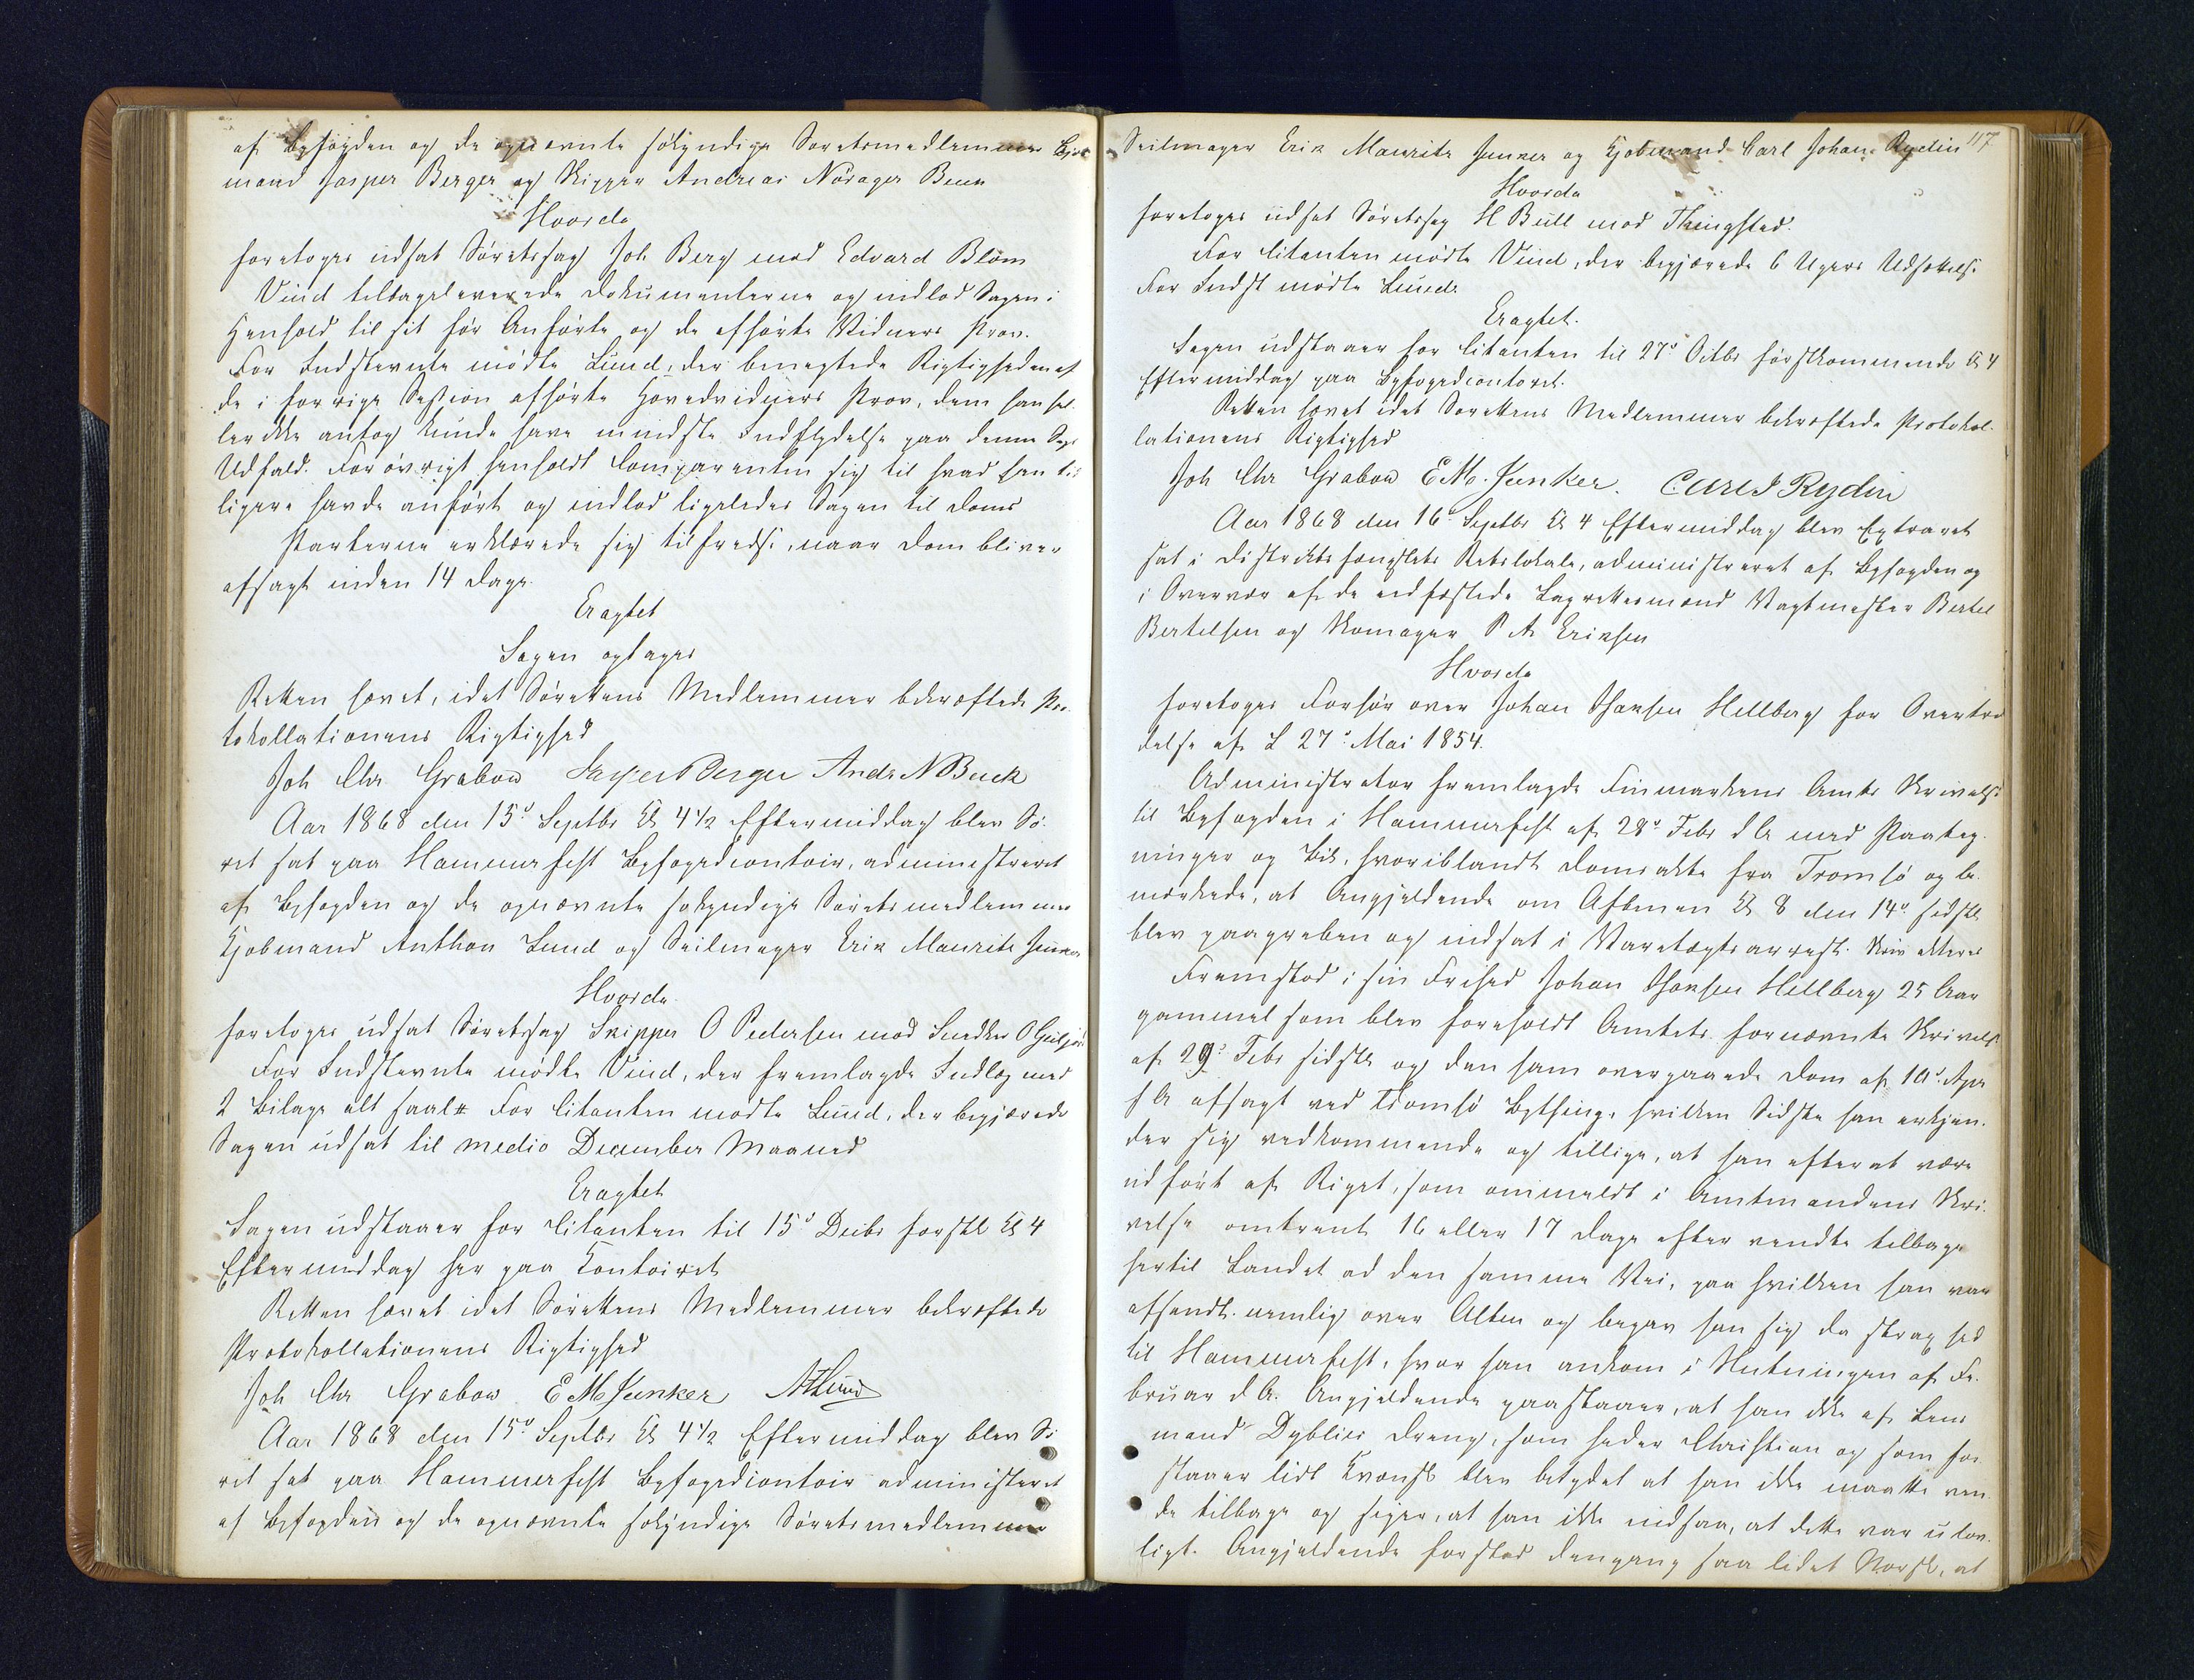 af Byfogden og de opnævnte søkyndige Søretsmedlemmer Kjøb
mand Jasper Berger og Skipper Andreas Norager Beck
Hvorda
foretoges udsat Søretssag Joh Berg mod Edvard Blom
Vind tilbageleverede Dokumenterne og indlod Sagen i
Henhold til sit før Anførte og de afhørte Vidners Prov.
For Indstevnte mødte Lund, der benegtede Rigtigheden af
de i forrige Session afhørte Hovedvidners Prov, dem han hel
ler ikke antog kunde have mindste Indflydelse paa denne Sags
Udfald. Forøvrigt henholdt Comparenten sig til hvad han tid
ligere havde anført og indlod ligeledes Sagen til Doms
Parterne erklærede sig tilfreds, naar Dom bliver
afsagt inden 14 Dage.
Eragtet
Sagen optages
Retten hævet, idet Sørettens Medlemmer bekræftede Pro
tokollationens Rigtighed
Joh Chr Grabow Jasper Berger Andr N Beck
Aar 1868 den 15d Septbr Kl 4 1/2 Eftermiddag blev Sø
ret sat paa Hammerfest Byfogedcontoir, administreret
af Byfogden og de opnævnte søkyndige Søretsmedlemmer
Kjøbmand Anthon Lund og Seilmager Erik Mauritz Junker
Hvorda
foretoges udsat Søretssag Skipper O Pedersen mod Snedker O
For Indstevnte mødte Vind, der fremlagde Indlæg med
2 Bilage alt saal. For Citanten mødte Lund, der begjærede
Sagen udsat til medio December Maaned
Eragtet
Sagen udstaaer for Citanten til 15d Decbr førstk Kl 4
Eftermiddag her paa Contoiret
Retten hævet idet Sørettens Medlemmer bekræftede
Protokollationens Rigtighed
Joh Chr Grabow E M Junker A Lund
Aar 1868 den 15d Septbr Kl 4 1/2 Eftermiddag blev Sø
ret sat paa Hammerfest Byfogedcontoir administeret
af Byfogden og de opnævnte søkyndige Søretsmedlemmer
Seilmager Erik Mauritz Junker og Kjøbmand Carl Johan Rydin 117
Hvorda
foretoges udsat Søretssag H Bull mod Thingstad.
For Citanten mødte Vind, der begjærede 6 Ugers Udsættelse
For Indst mødte Lund
Eragtet.
Sagen udstaaer for Citanten til 27d Octbr førstkommende Kl 4
Eftermiddag paa Byfogedcontoret.
Retten hævet idet Sørettens Medlemmer bekræftede Protokol
lationens Rigtighed
Joh Chr Grabow E M. Junker. Carl J Rydin
Aar 1868 den 16d Septbr Kl 4 Eftermiddag blev Extraret
sat i Distriktsfængslets Retslokale, administreret af Byfogden og
i Overvær af de edfæstede Lagrettesmænd Vagtmester Bertel
Bertelsen og Skomager P A Eriksen
Hvorda
foretoges Forhør over Johan Hansen Hellberg for Overtræ
delse af L 27d Mai 1854.
Administrator fremlagde Finmarkens Amts Skrivelse
til Byfogden i Hammerfest af 28d Febr d A med Paateg
ninger og Bil, hvoriblandt Domsakte fra Tromsø og be
mærkede, at Angjældende om Aftenen Kl 8 den 14d sidstl
blev paagreben og indsat i Varetægtsarrest. Skriv akteres
Fremstod i sin Frihed Johan Hansen Hellberg 25 Aar
gammel som blev foreholdt Amtets fornævnte Skrivelse
af 29d Febr sidstl og den ham overgaaede Dom af 10d Apr
f A afsagt ved Tromsø Bything, hvilken Sidste han erkjen
der sig vedkommende og tillige, at han efter at være
udført af Riget, som ommeldt i Amtmandens Skri
velse omtrent 16 eller 17 Dage efter vendte tilbage
hertil Landet ad den samme Vei, paa hvilken han var
afsendt, nemlig over Alten og begav han sig da strax hid
til Hammerfest, hvor han ankom i Slutningen af Fe
bruar d A. Angjældende paastaaer, at han ikke af Lens
mand Dyblies Dreng, som heder Christian og som for
staaer lidt Kvænsk blev betydet at han ikke maatte ven
de tilbage og siger, at han ikke indsaa, at dette var ulov
ligt. Angjældende forstod dengang saa lidet Norsk, at